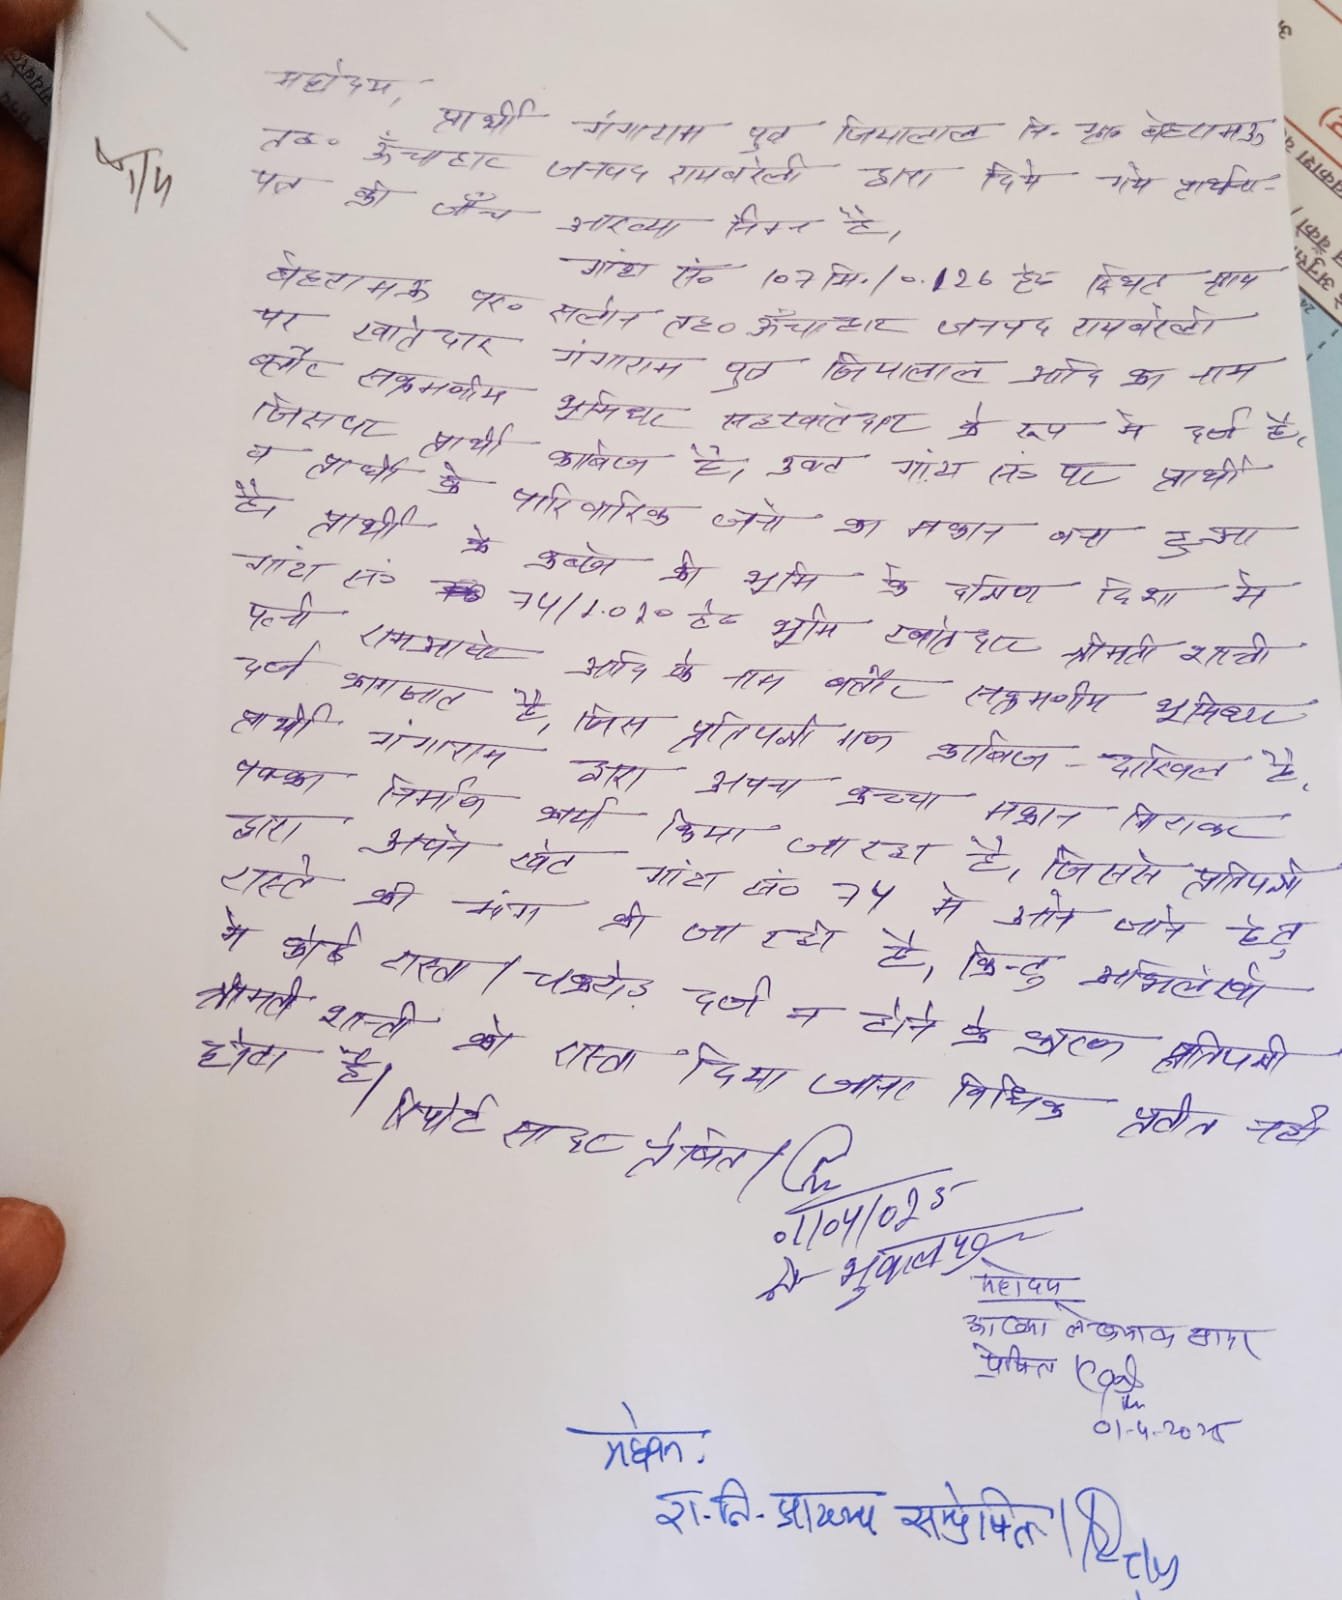 महोदय,
प्रार्थी गंगाराम पुत्र जियालाल नि. ग्रा० बेहरामऊ
तह० ऊँचाहार जनपद रायबरेली द्वारा दिये गये प्रार्थना-
पत्र की जाँच आख्या निम्न है,
गाटा सं० 107 मि./0.126 हे० स्थित ग्राम
बेहरामऊ पर० सलोन तह० ऊँचाहार जनपद रायबरेली
पर खातेदार गंगाराम पुत्र जियालाल आदि का नाम
बतौर संक्रमणीय भूमिधर सहखातेदार के रूप मे दर्ज है,
जिसपर प्रार्थी काबिज है, उक्त गाटा सं० पर प्रार्थी
व प्रार्थी के पारिवारिक जनो का मकान बना हुआ
है। प्रार्थी के कब्जे की भूमि के दक्षिण दिशा मे
गाटा सं० 74/1.020 हे० भूमि खातेदार श्रीमती शान्ती
पत्नी रामआधार आदि के नाम बतौर संक्रमणीय भूमिधर
दर्ज कागजात है, जिस प्रतिपक्षी गण काबिज-दाखिल है,
प्रार्थी गंगाराम द्वारा अपना कच्चा मकान गिराकर
पक्का निर्माण कार्य किया जा रहा है, जिससे प्रतिपक्षी
द्वारा अपने खेत गाटा सं० 74 मे आने जाने हेतु
रास्ते की मांग की जा रही है, किन्तु अभिलेखो
मे कोई रास्ता/चकरोड दर्ज न होने के कारण प्रतिपक्षी
श्रीमती शान्ती को रास्ता दिया जाना विधिक प्रतीत नही
होता है। रिपोर्ट सादर प्रेषित।
01/04/025
महोदय
आख्या लेखपाल सादर
प्रेषित
01-4-2025
महोदय,
रा.नि. आख्या सम्प्रेषित।